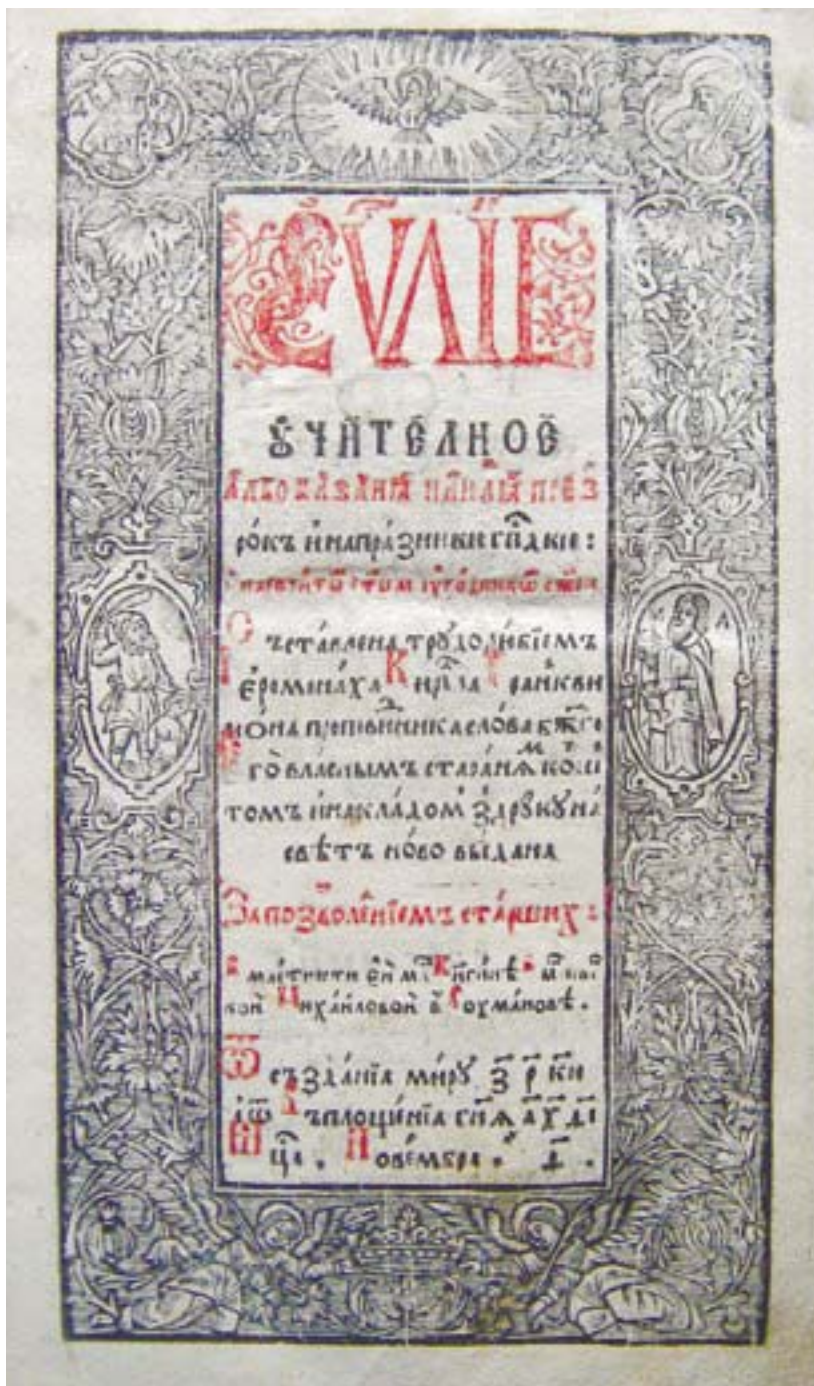 ЄѴЛІЕ
ꙋчи́тélноє
а́лбо каза́нїѧ на нлѧ прєз
ро́къ и на пра́зники гдⷭ҇кїє:
и
съставлена трудолю́бїємъ
ієромона́ха Кири́лла Транкви
лиона проповѣдника слова бж҃го
єго вла́снымъ стара́нѧм кош
томъ и накла́домъ з дрꙋкꙋ на
свѣтъ но́во вы́дана
За позволе́нїємъ ста́рших
в маєтности єи мл҃ Кнѧгинѣ
Михайловой в Рохма́новѣ.
Ѿ създа́нїѧ ми́рꙋ ҂з р к҃и
а ѿ въплоще́нїѧ гнѧ ҂а х д҃і
Мц҃а. Новє́мбра. д҃.